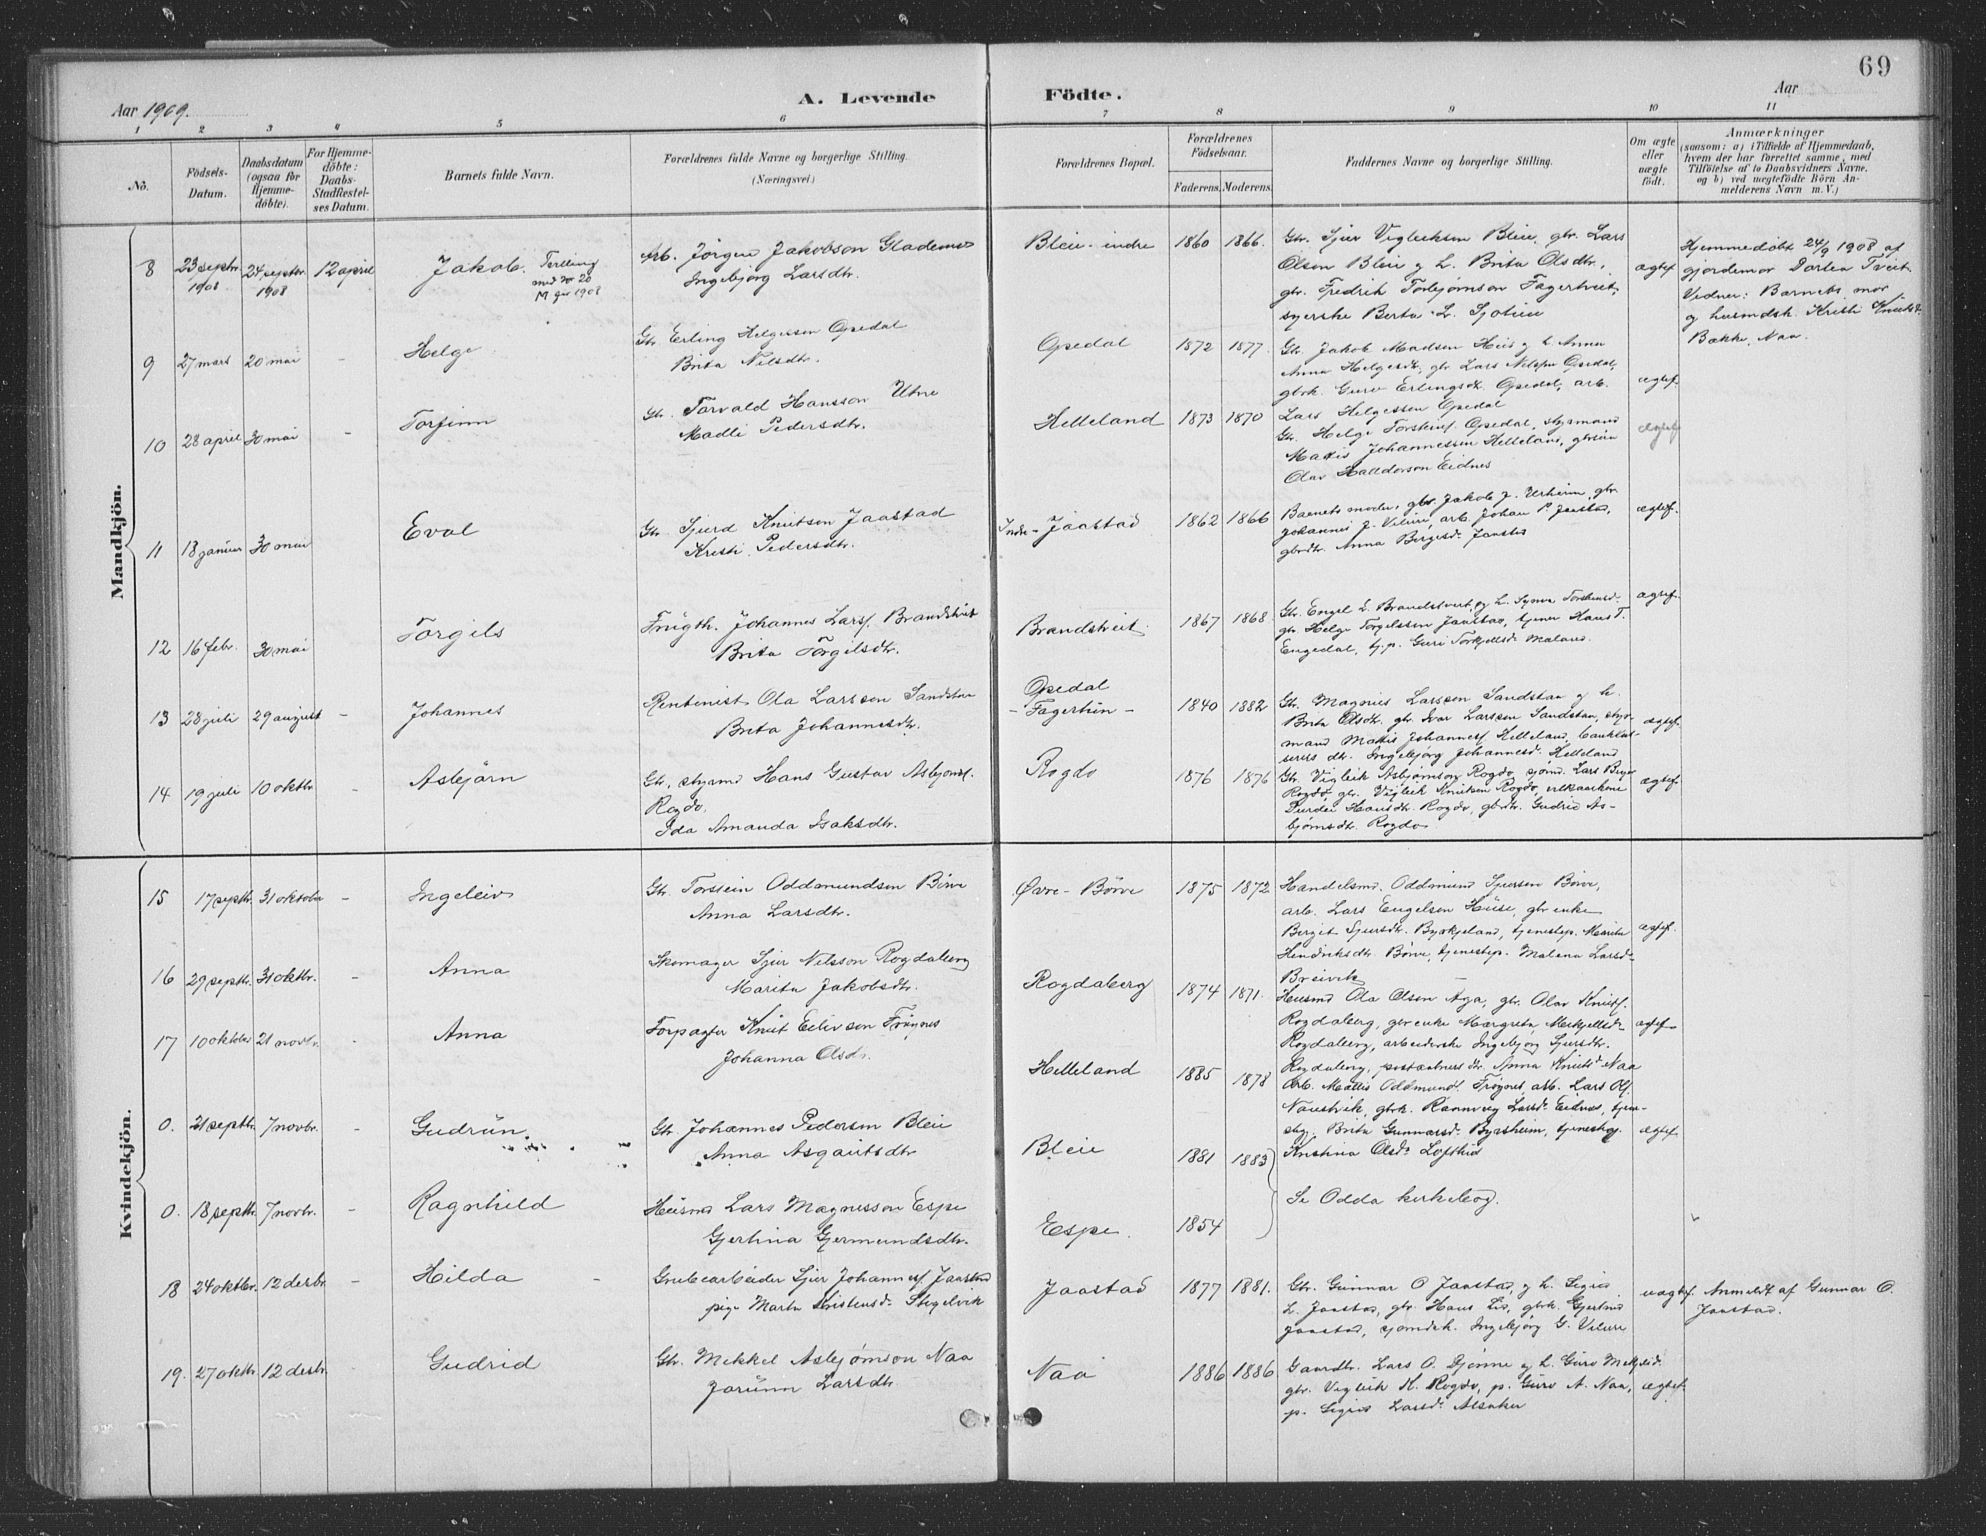 69
Aar 1909.
A. Levende Födte.
Aar
1 2 3 4 5 6 7 8 9 10 11
No.
Födsels-Datum.
Daabsdatum (ogsaa för Hjemmedöbte).
For Hjemmedöbte: Daabs-Stadfæstelses Datum.
Barnets fulde Navn.
Forældrenes fulde Navne og borgerlige Stilling.
(Næringsvei)
Forældrenes Bopæl.
Forældrenes Födselsaar.
Faderens. Moderens.
Faddernes Navne og borgerlige Stilling.
Om ægte eller uægte født.
Anmærkninger
(saasom: a) i Tilfælde af Hjemmedaab, hvem der har forrettet samme, med Tilföielse af to Daabsvidners Navne, og b) ved uægtefödte Börn Anmelderens Navn m. V.)
Mandkjön.
8 23 septbr. 1908 24 septbr 1908 12 april Jakob. Tvilling med No 20 M for 1908
Arb. Jörgen Jakobson
Ingebjörg Larsdtr.
Bleie - indre 1860 1866.
Gbr. Sjur Vigleiksen Bleie, gbr. Lars
Olsen Bleie g h. Brita Olsdtr,
gbr. Fredrik Torbjørnson Fagertveit,
syerske Berta L. Sjotun
ægtef
Hjemmedöbt 24/9 1908 af
gjordemor Dortea Tveit.
Vidner: Barnets mor
og husmdsk. Kristi
Bække, Naa.
9 27 mars 20 mai - Helge
Gbr Erling Helgesen Opedal
Brita Nilsdtr.
Opedal 1872 1877.
Gbr. Jakob Madsen Hus g h. Anna
Anna Helgesdtr, gbr Lars Nilssen Opedal,
gbrk. Guro Erlingsdtr Opedal, arb.
Lars Helgessen Opedal
ægtef.
10 28 april 30 mai - Torfinn
Gbr. Torvald Hansson Utne
Madli Pedersdtr.
Helleland 1873 1870
Gbr. Helge Torsteins. Opedal, styrmand
Mattis Johannessen Helleland, gbrsön
Olav Halldorson Eidnes
ægtef
11 18 januar 30 mai Eval
Gbr. Sjurd Knutson Jaastad
Kristi Pedersdtr.
Indre - Jaastad 1862 1866
Barnets moder, gbr Jakob J. Urheim, gbr.
Johannes J. Vilure, arb. Johan P. Jaastad,
gbrdtr. Anna Bergesdr Jaastad
ægtef.
12 16 febr. 30 mai Torgils
Frugth. Johannes Larss. Brandstveit
Brita Torgilsdtr.
Brandstveit. 1867 1868.
Gbr. Engel L. Brandstveit, g h. Synva Torsteinsd.
gbr. Helge Torgelssen Jaastad, tjener Hans T.
Engedal, tj.p. Guri Torkjellsdr Maland.
ægtef.
13 28 juli 29 august - Johannes
Rentenist Ola Larssen Sandstaa
Brita Johannesdtr.
Opedal
- Fagerhim - 1840 1882
Gbr. Magnus Larssen Sandstaa g h.
Brita Olsdtr. gbr. Ivar Larssen Sandstaa, styr-
mand Mattis Johanness. Helleland, bankkas-
serers dtr. Ingebjörg Johannesdr. Helleland
ægtef.
14 19 juli 10 oktbr. - Asbjörn
Gbr, styrmd Hans Gustav Asbjørns.
Rogdo.
Ida Amanda Isaksdtr.
Rogdo 1876 1876
Gbr. Vigleik Asbjørnson Rogdo, sjømd. Lars
Rogdo, gbr. Vigleik Knutsen Rogdo, enkekone
Durdei Hansdtr. Rogdo, gbrdtr. Gudrid As-
bjørnsdtr. Rogdo
ægtef.
Kvindekjön.
15 17 septbr. 31 oktober - Ingeleiv
Gbr. Torstein Oddmundsen Börve
Anna Larsdtr.
Øvre - Börve 1875 1872
Handelsmd. Oddmund Sjursen Börve,
arb. Lars Engelsen Huse, gbr enke
Berget Sjursdtr. Byrkjeland, tjenestep. Marita
Hendriksdtr Börve, tjenestep. Malena Larsdr.
Breivik
ægtef.
16 29 septbr. 31 oktbr. - Anna
Skomager Sjur Nilsson Rogdaberg
Marita Jakobsdtr.
Rogdaberg 1874 1871.
Husmd Ola Olsen Aga, gbr. Olav Knuts.
Rogdaberg, gbr enke Mærgreta Mikjellsdr
Rogdaberg, arbeiderske Ingebjörg Sjursdtr.
Rogdaberg, postaabners dtr. Anna Knutsd Naa
ægtef.
17 10 oktbr 21 novbr. - Anna
Forpagter Knut Eilivsen Frøynes
Johanna Olsdr.
Helleland 1885 1878
Arb. Mattis Oddmunds. Frøynes, arb. Lars Ols.
Naustvik, gbrk. Rannveig Larsdr Eidnes, tjene-
step. Brita Gunnarsdr Byrsheim, tjenestep.
Kristina Olsdr Lofthus
ægtef.
0. 21 septbr. 7 novbr. Gudrun
Gbr Johannes Pedersen Bleie
Anna Asgautsdtr
Bleie 1881 1883
Se Odda kirkebog.
0. 18 septbr. 7 novbr. - Ragnhild
Husmd Lars Magnusson Espe
Gjertina Gjermundsdtr.
Espe. 1854
18 24 oktbr. 12 desbr. - Hilda -
Grubearbeider Sjur Johanness Jaastad
pige Marta Kristensdr Stegelvik
Jaastad 1877 1881.
Gbr. Gunnar O Jaastad, g h. Sigrid
L. Jaastad, gbr. Hans Lid, gbrk. Gjertrud
Jaastad, sjømdsk. Ingebjörg G. Vilure
uægtef.
Anmeldt af Gunnar O.
Jaastad.
19. 27 oktbr. 12 desbr. Gudrid
Gbr. Mikkel Asbjørnson Naa
Jorunn Larsdtr.
Naa 1886 1886
Gaardbr. Lars O. Djönne g h. Guro Mikjelsd.
gbr. Vigleik K. Rogdo, p. Guro A. Naa,
p. Sigrid Larsdr Alsaker
ægtef.